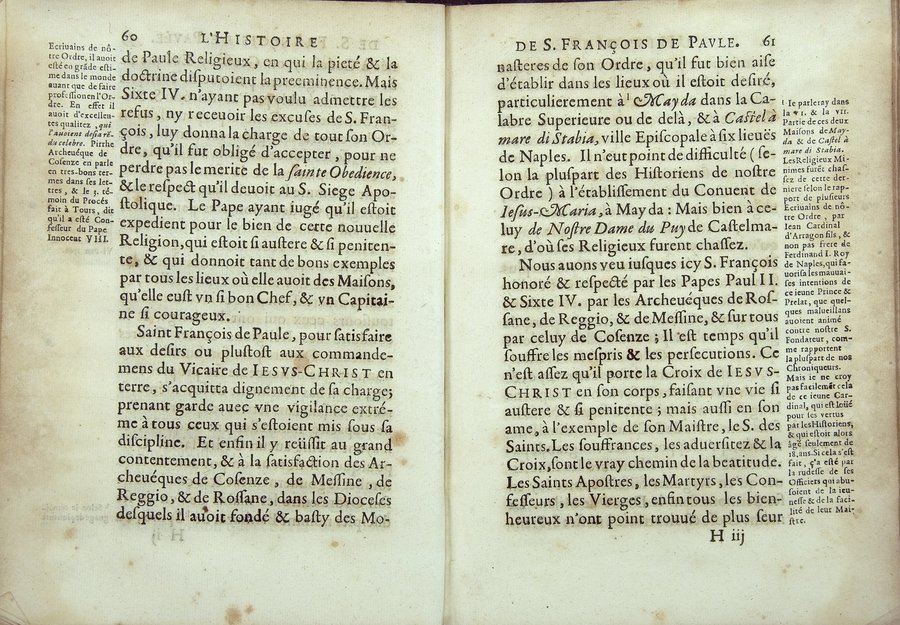 60 L'HISTOIRE
Ecriuains de nô-
tre Ordre, il auoit
esté en grãde esti-
me dans le monde
auant que de faire
profession en l'Or-
dre. En effet il
auoit d'excellen-
tes qualitez, qui
l'auoient desia rẽ-
du celebre. Pirrhe
Archeuéque de
Cosenze en parle
en tres-bons ter-
mes dans ses let-
tres, & le 3. té-
moin du Procés
fait à Tours, dit
qu'il a esté Con-
fesseur du Pape
Innocent VIII.
de Paule Religieux, en qui la pieté & la
doctrine disputoient la preeminence. Mais
Sixte IV. n'ayant pas voulu admettre les
refus, ny receuoir les excuses de S. Fran-
çois, luy donna la charge de tout son Or-
dre, qu'il fut obligé d'accepter, pour ne
perdre pas le merite de la sainte Obedience,
& le respect qu'il deuoit au S. Siege Apo-
stolique. Le Pape ayant iugé qu'il estoit
expedient pour le bien de cette nouuelle
Religion, qui estoit si austere & si peniten-
te, & qui donnoit tant de bons exemples
par tous les lieux où elle auoit des Maisons,
qu'elle eust vn si bon Chef, & vn Capitai-
ne si courageux.
Saint François de Paule, pour satisfaire
aux desirs ou plustost aux commande-
mens du Vicaire de IESVS-CHRIST en
terre, s'acquitta dignement de sa charge;
prenant garde auec vne vigilance extré-
me à tous ceux qui s'estoient mis sous sa
discipline. Et enfin il y reüssit au grand
contentement, & à la satisfaction des Ar-
cheuéques de Cosenze, de Messine, de
Reggio, & de Rossane, dans les Dioceses
desquels il auoit fondé & basty des Mo-
DE S. FRANÇOIS DE PAVLE. 61
nasteres de son Ordre, qu'il fut bien aise
d'établir dans les lieux où il estoit desiré,
particulierement à Mayda dans la Ca-
labre Superieure ou de delà, & à Castel à
mare di Stabia, ville Episcopale à six lieuës
de Naples. Il n'eut point de difficulté (se-
lon la pluspart des Historiens de nostre
Ordre) à l'établissement du Conuent de
Iesus-Maria, à Mayda : Mais bien à ce-
luy de Nostre Dame du Puy de Castelma-
re, d'où ses Religieux furent chassez.
Nous auons veu iusques icy S. François
honoré & respecté par les Papes Paul II.
& Sixte IV. par les Archeuéques de Ros-
sane, de Reggio, & de Messine, & sur tous
par celuy de Cosenze ; Il est temps qu'il
souffre les mespris & les persecutions. Ce
n'est assez qu'il porte la Croix de IESVS-
CHRIST en son corps, faisant vne vie si
austere & si penitente ; mais aussi en son
ame, à l'exemple de son Maistre, le S. des
Saints. Les souffrances, les aduersitez & la
Croix, sont le vray chemin de la beatitude.
Les Saints Apostres, les Martyrs, les Con-
fesseurs, les Vierges, enfin tous les bien-
heureux n'ont point trouué de plus seur
H iij
Ie parleray dans
la VI. & la VII.
Partie de ces deux
Maisons de May-
da & de Castel à
mare di Stabia.
Les Religieux Mi-
nimes furẽt chas-
sez de cette der-
niere selon le rap-
port de plusieurs
Ecriuains de nô-
tre Ordre, par
Iean Cardinal
d'Arragon fils, &
non pas frere de
Ferdinand I. Roy
de Naples, qui fa-
uorisa les mauuai-
ses intentions de
ce ieune Prince &
Prelat, que quel-
ques malueillans
auoient animé
contre nostre S.
Fondateur, com-
me rapportent
la pluspart de nos
Chroniqueurs.
Mais ie ne croy
pas facilemẽt cela
de ce ieune Car-
dinal, qui est loüé
pour ses vertus
par les Historiens,
& qui estoit alors
âgé seulement de
18. ans. Si cela s'est
fait, ç'a esté par
la rudesse de ses
Officiers qui abu-
soient de la ieu-
nesse & de la faci-
lité de leur Mai-
stre.